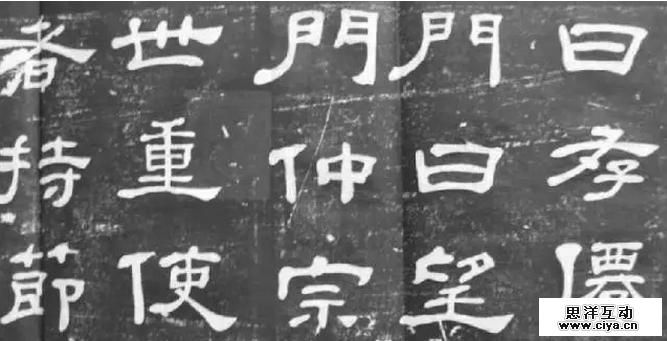 曰存僊
門曰望
門仲宗
世重使
者持節
思洋互动
www.ciya.cn